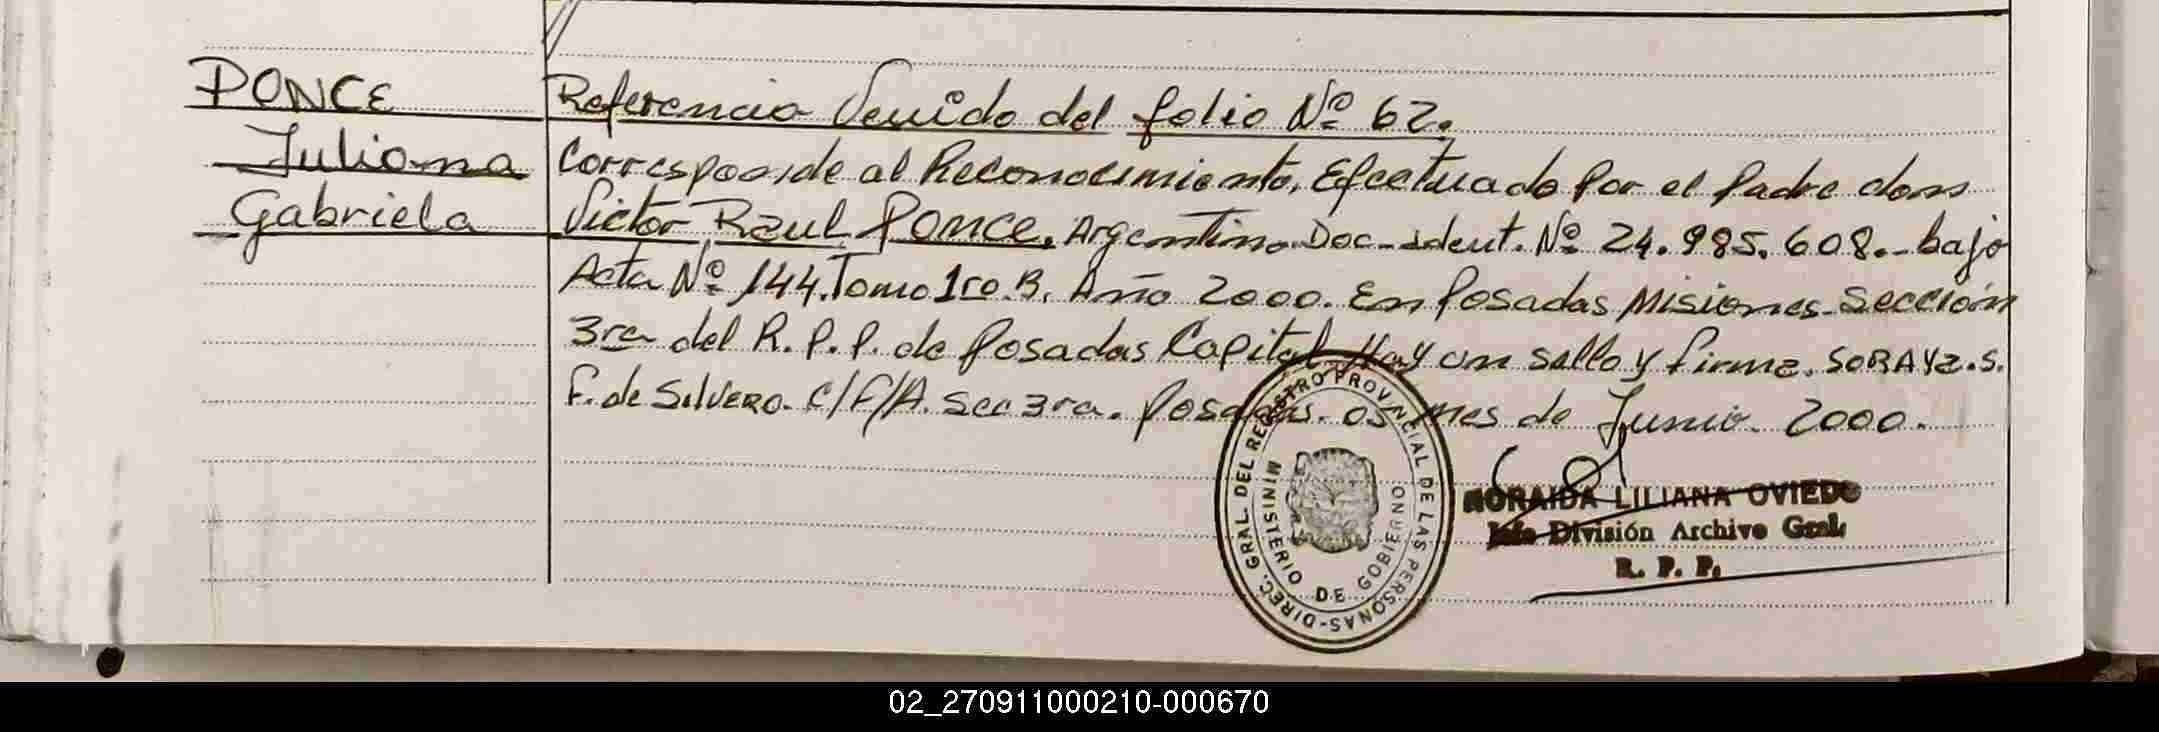 PONCE
Juliana
Gabriela
Referencia Venido del folio Nº 62.
Corresponde al Reconocimiento, Efectuado Por el Padre don
Victor Raul Ponce, Argentino. Doc-ident. Nº 24.985.608.- bajo
Acta Nº 144. Tomo 1ro. B. Año 2000. En Posadas Misiones. Sección
3ra del R.P.P. de Posadas Capital Hay un sello y firma. SORAYa.S.
F. de SilVERO. C/F/A. Sec 3ra. Posadas. 05 mes de Junio. 2000.
DIREC. GRAL. DEL REGISTRO PROVINCIAL DE LAS PERSONAS-
MINISTERIO DE GOBIERNO
NORAIDA LILIANA OVIEDO
Jefe División Archivo Gral.
R. P. P.
02_270911000210-000670